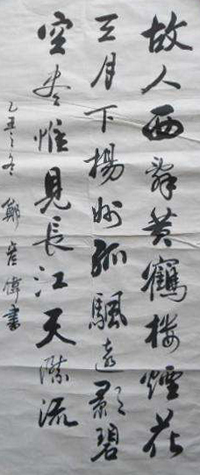 故人西辞黄鶴楼煙花
三月下揚州孤颿遠影碧
空尽惟見長江天際流
乙丑之冬 鄭岩偉書